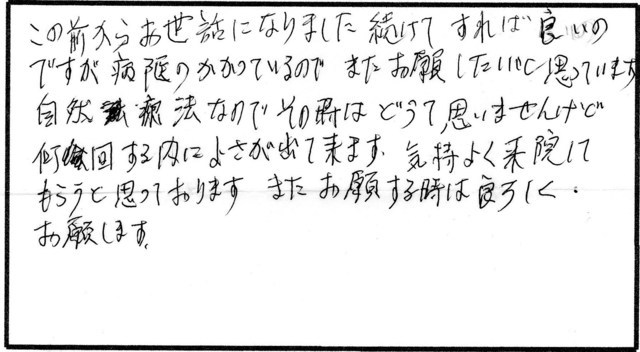 この前からお世話になりました 続けて すれば 良いの
ですが 病院のかかっているので またお願したいと思っています
自然 療法なのでその時は どうて 思いませんけど
何回する内によさが出て来ます. 気持よく来院して
もらうと思っております また お願する時は良ろしく.
お願します.